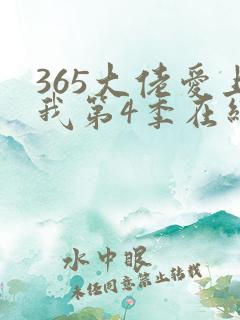 365大佬爱上
我第4季在线
水中眠
未经同意禁止转载